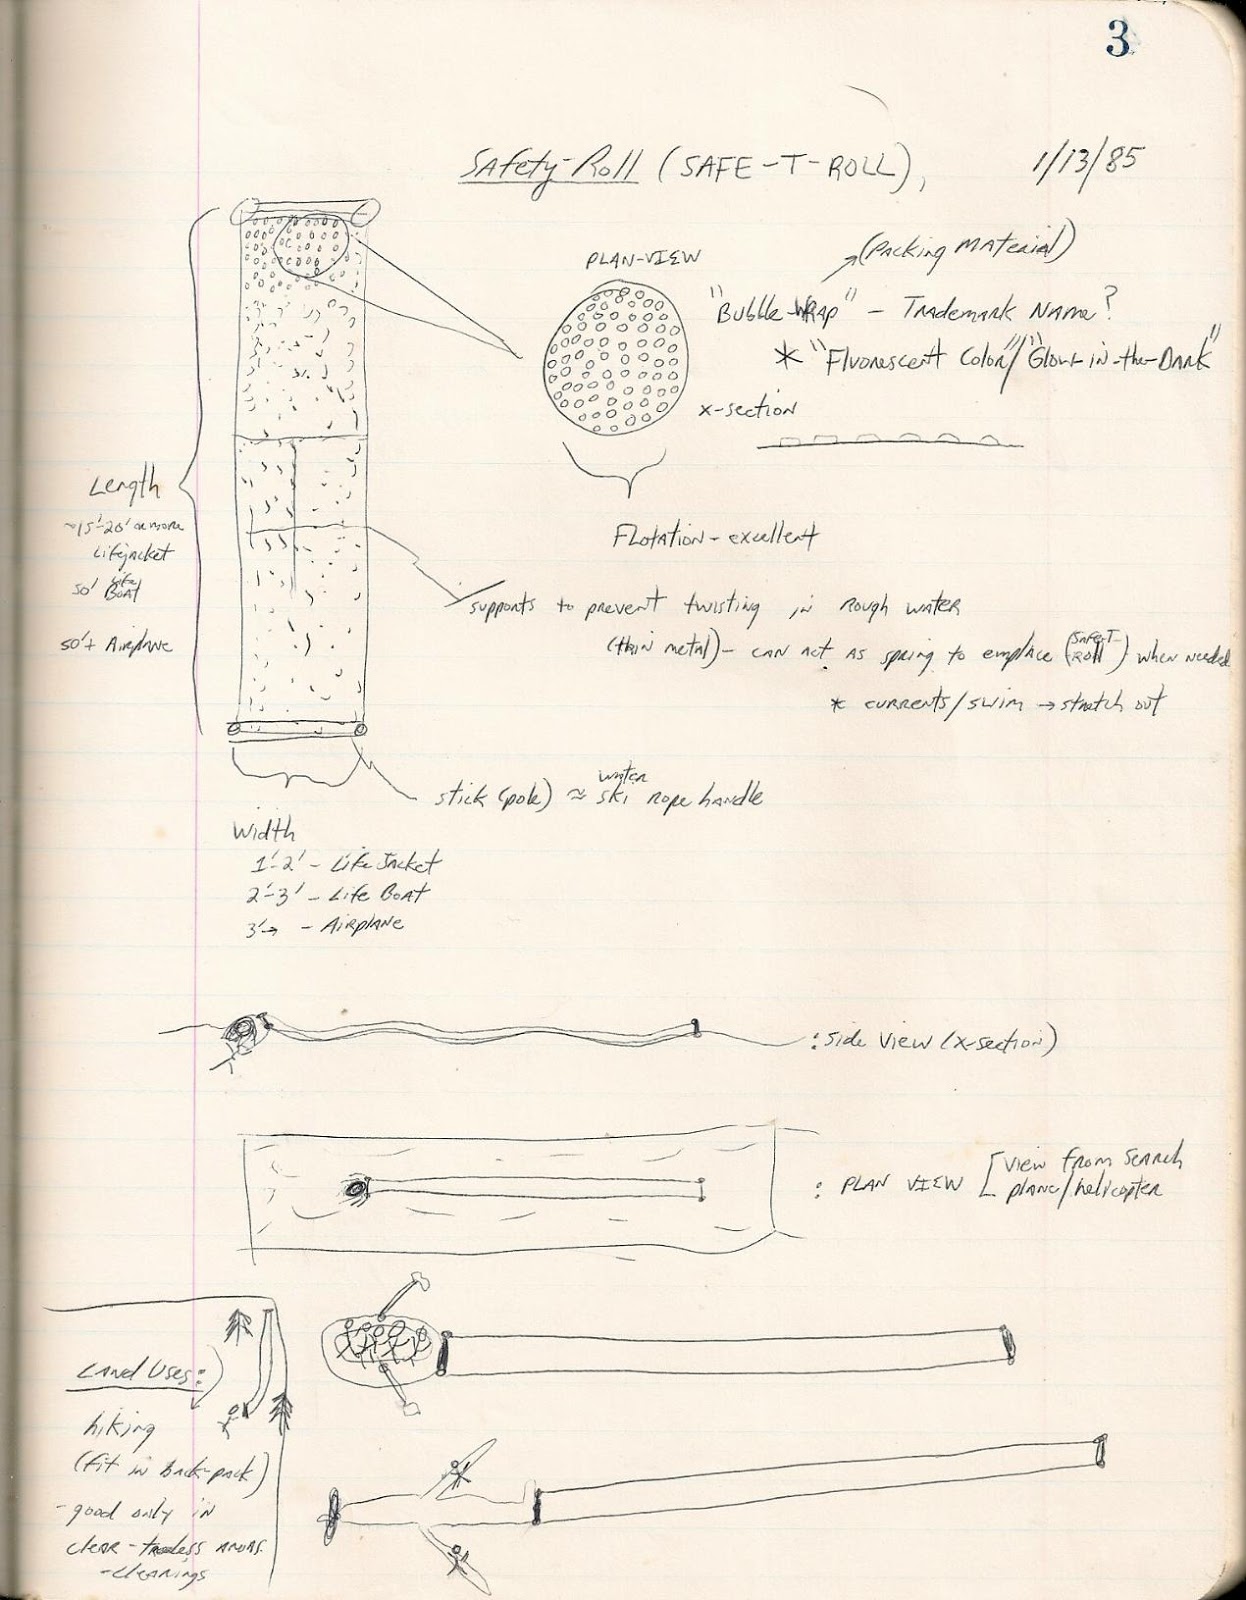 3
Safety-Roll (SAFE-T-ROLL),
1/13/85
PLAN-VIEW
(Packing Material)
"Bubble-Wrap" - Trademark Name?
* "Fluorescent Color"/"Glow-in-the-Dark"
x-section
Flotation - excellent
Length
~15'-20' or more
Lifejacket
50' Life Boat
50'+ Airplane
supports to prevent twisting in rough water
(thin metal) - can act as spring to emplace (SAFE-T-ROLL) when needed
* currents/swim → stretch out
stick (pole) ≈ water ski rope handle
Width
1'-2' - Life Jacket
2'-3' - Life Boat
3'→ - Airplane
: Side View (x-section)
: PLAN VIEW [View from search
plane/helicopter
Land Uses:
hiking
(fit in back-pack)
- good only in
clear-treeless areas.
- clearings